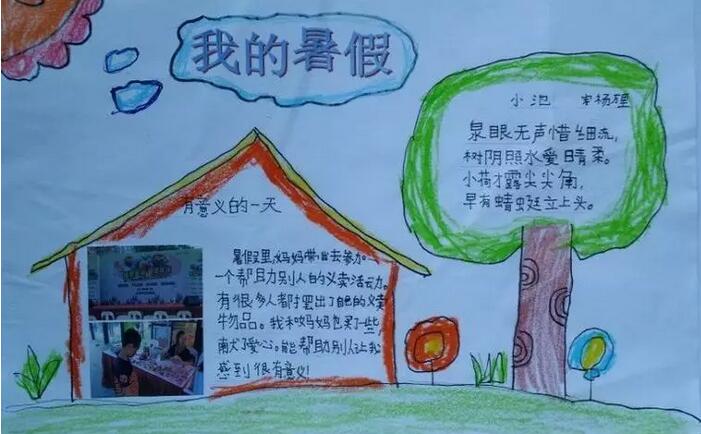 我的暑假
小池 宋杨
泉眼无声惜细流,
树阴照水爱晴柔。
小荷才露尖尖角,
早有蜻蜓立上头。
有意义的一天
暑假里,妈妈带我去参加
一个帮助别人的义卖活动。
有很多人都拿出了自己的义卖
物品。我和妈妈也买了一些,
献了爱心。能帮助别人让我
感到很有意义!